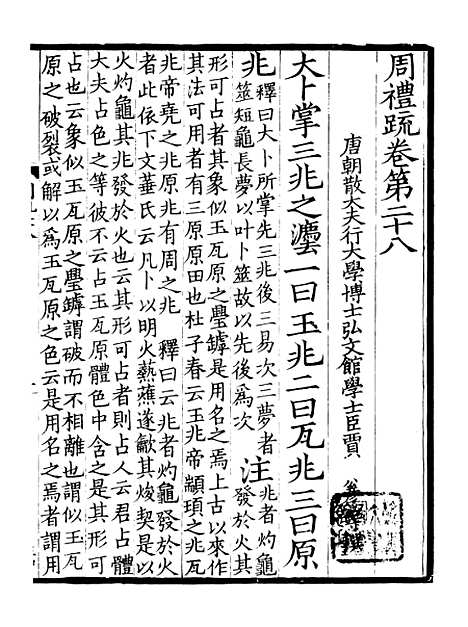 周禮疏卷第二十八
唐朝散大夫行大學博士弘文館學士臣賈
大卜掌三兆之灋一曰玉兆二曰瓦兆三曰原
兆
釋曰大卜所掌先三兆後三易次三夢者
筮短龜長夢以叶卜筮故以先後爲次
注
兆者灼龜
發於火其
形可占者其象似玉瓦原之璺罅是用名之焉上古以來作
其法可用者有三原原田也杜子春云玉兆帝顓頊之兆瓦
兆帝堯之兆原兆有周之兆 釋曰云兆者灼龜發於火
者此依下文菙氏云凡卜以明火爇燋遂龡其焌契是以
火灼龜其兆發於火也云其形可占者則占人云君占體
大夫占色之等彼不云占玉瓦原體色中含之是其形可
占也云象似玉瓦原之璺罅謂破而不相離也謂似玉瓦
原之破裂或解以爲玉瓦原之色云是用名之焉者謂用